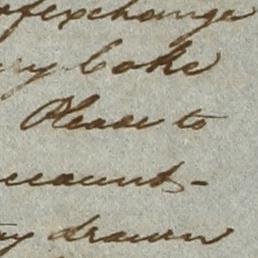 of exchange
Coke
Please to
ccount-
drawn